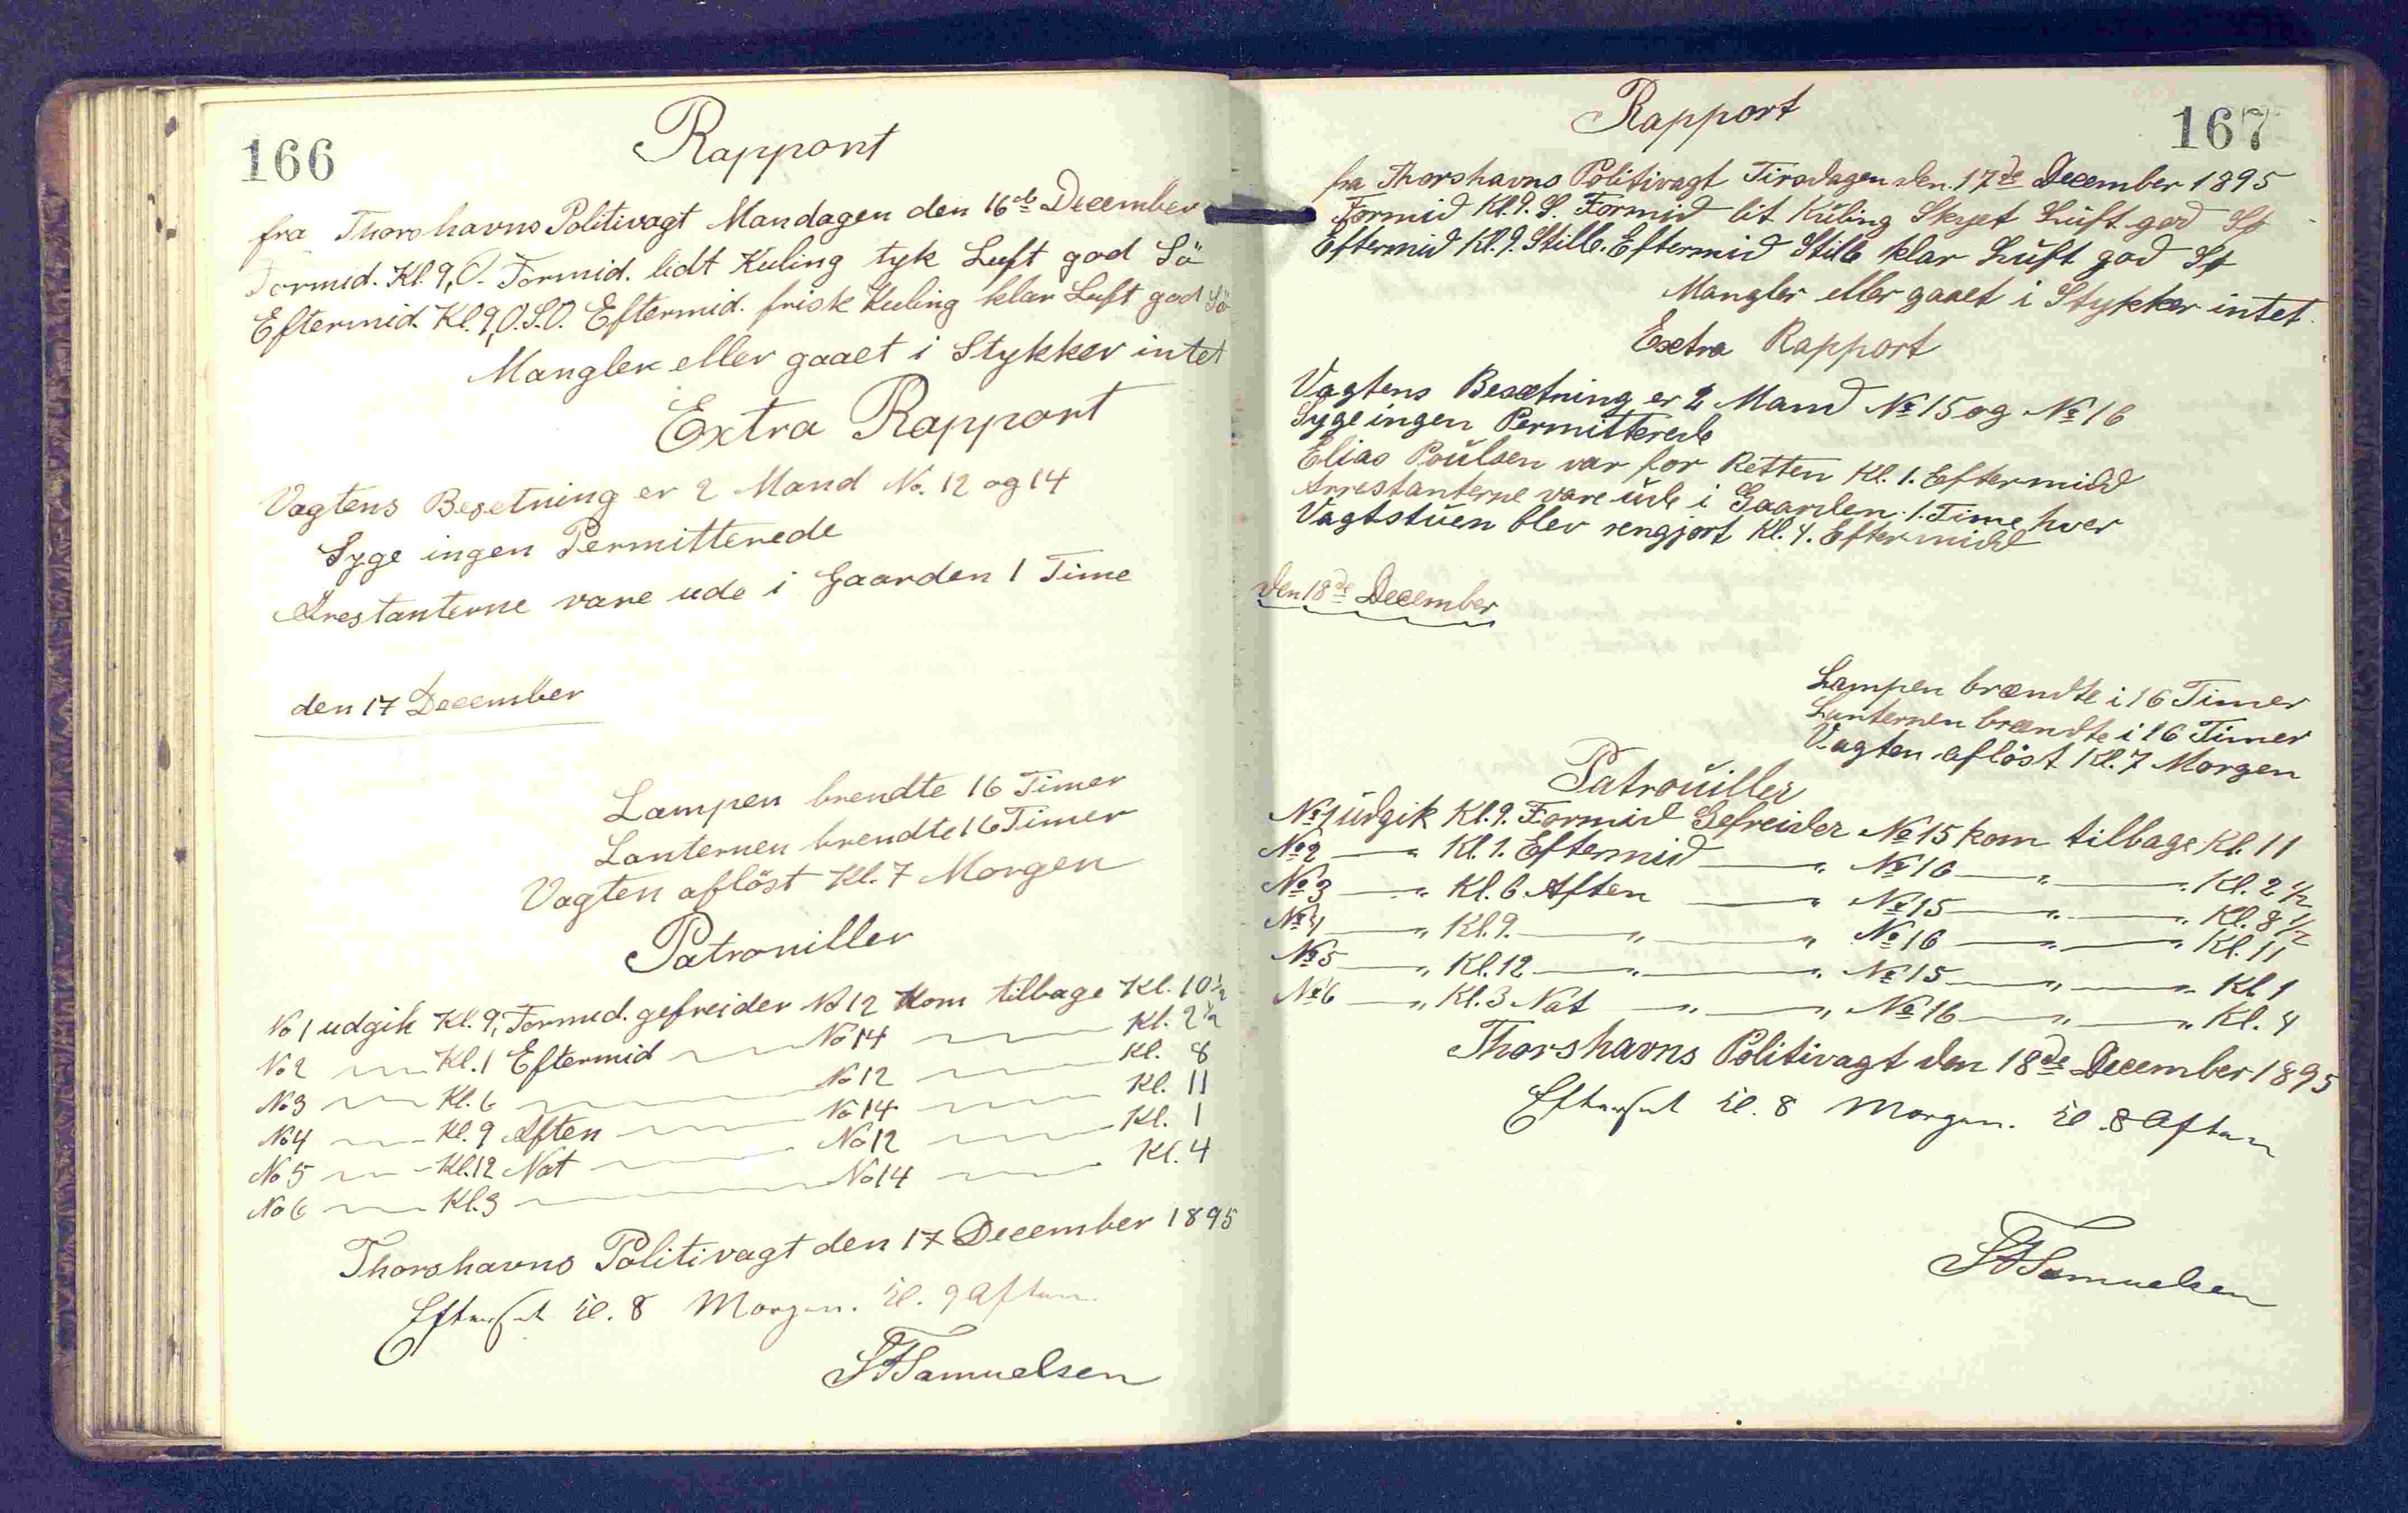 166
Rapport
fra Thorshavns Politivagt Mandagen den 16de December
Formid. Kl. 9, O. Formid. lidt Kuling tyk Luft god Sö
Eftermid. Kl. 9, O.S.O. Eftermid. frisk Kuling klar Luft god Sö
Mangler eller gaaet i Stykker intet
Extra Rapport
Vagtens Besetning er 2 Mand No. 12 og 14
Syge ingen Permitterede
Arestanterne vare ude i Gaarden 1 Time
den 17 December
Lampen brendte 16 Timer
Lanternen brendte 16 Timer
Vagten aflöst Kl. 7 Morgen
Patrouiller
No 1 udgik Kl. 9, Formid. gefreider No 12 Kom tilbage Kl. 10½
No 2 Kl. 1 Eftermid No 14 Kl. 2½
No 3 Kl. 6 No 12 Kl. 8
No 4 Kl. 9 Aften No 14 Kl. 11
No 5 Kl. 12 Nat No 12 Kl. 1
No 6 Kl. 3 No 14 Kl. 4
Thorshavns Politivagt den 17 December 1895
Efterset Kl. 8 Morgen. Kl. 9 Aften
Samuelsen
167
Rapport
fra Thorshavns Politivagt Tirsdagen den 17de December 1895
Formid Kl. 9. S. Formid lit Kuling Skyet Luft god Sø
Eftermid Kl. 9. Stille. Eftermid Stille klar Luft god Sø
Mangler eller gaaet i Stykker intet.
Extra Rapport
Vagtens Besætning er 2 Mand No 15 og No 16
Syge ingen Permitterede
Elias Poulsen var for Retten Kl. 1. Eftermidd
Arrestanterne vare ude i Gaarden 1. Time hver
Vagtstuen blev rengjort Kl. 4. Eftermidd
den 18de December
Lampen brændte i 16 Timer
Lanternen brændte i 16 Timer
Vagten aflöst Kl. 7 Morgen
Patrouiller
No 1 udgik Kl. 9. Formid Gefreider No 15 kom tilbage Kl. 11
No 2 " Kl. 1. Eftermid " No 16 " " Kl. 2½
No 3 " Kl. 6 Aften " No 15 " " Kl. 8½
No 4 " Kl. 9. " " No 16 " " Kl. 11
No 5 " Kl. 12 " " No 15 " " Kl. 1
No 6 " Kl. 3 Nat " " No 16 " " Kl. 4
Thorshavns Politivagt den 18de December 1895
Efterset Kl. 8 Morgen. Kl. 8 Aften
Samuelsen